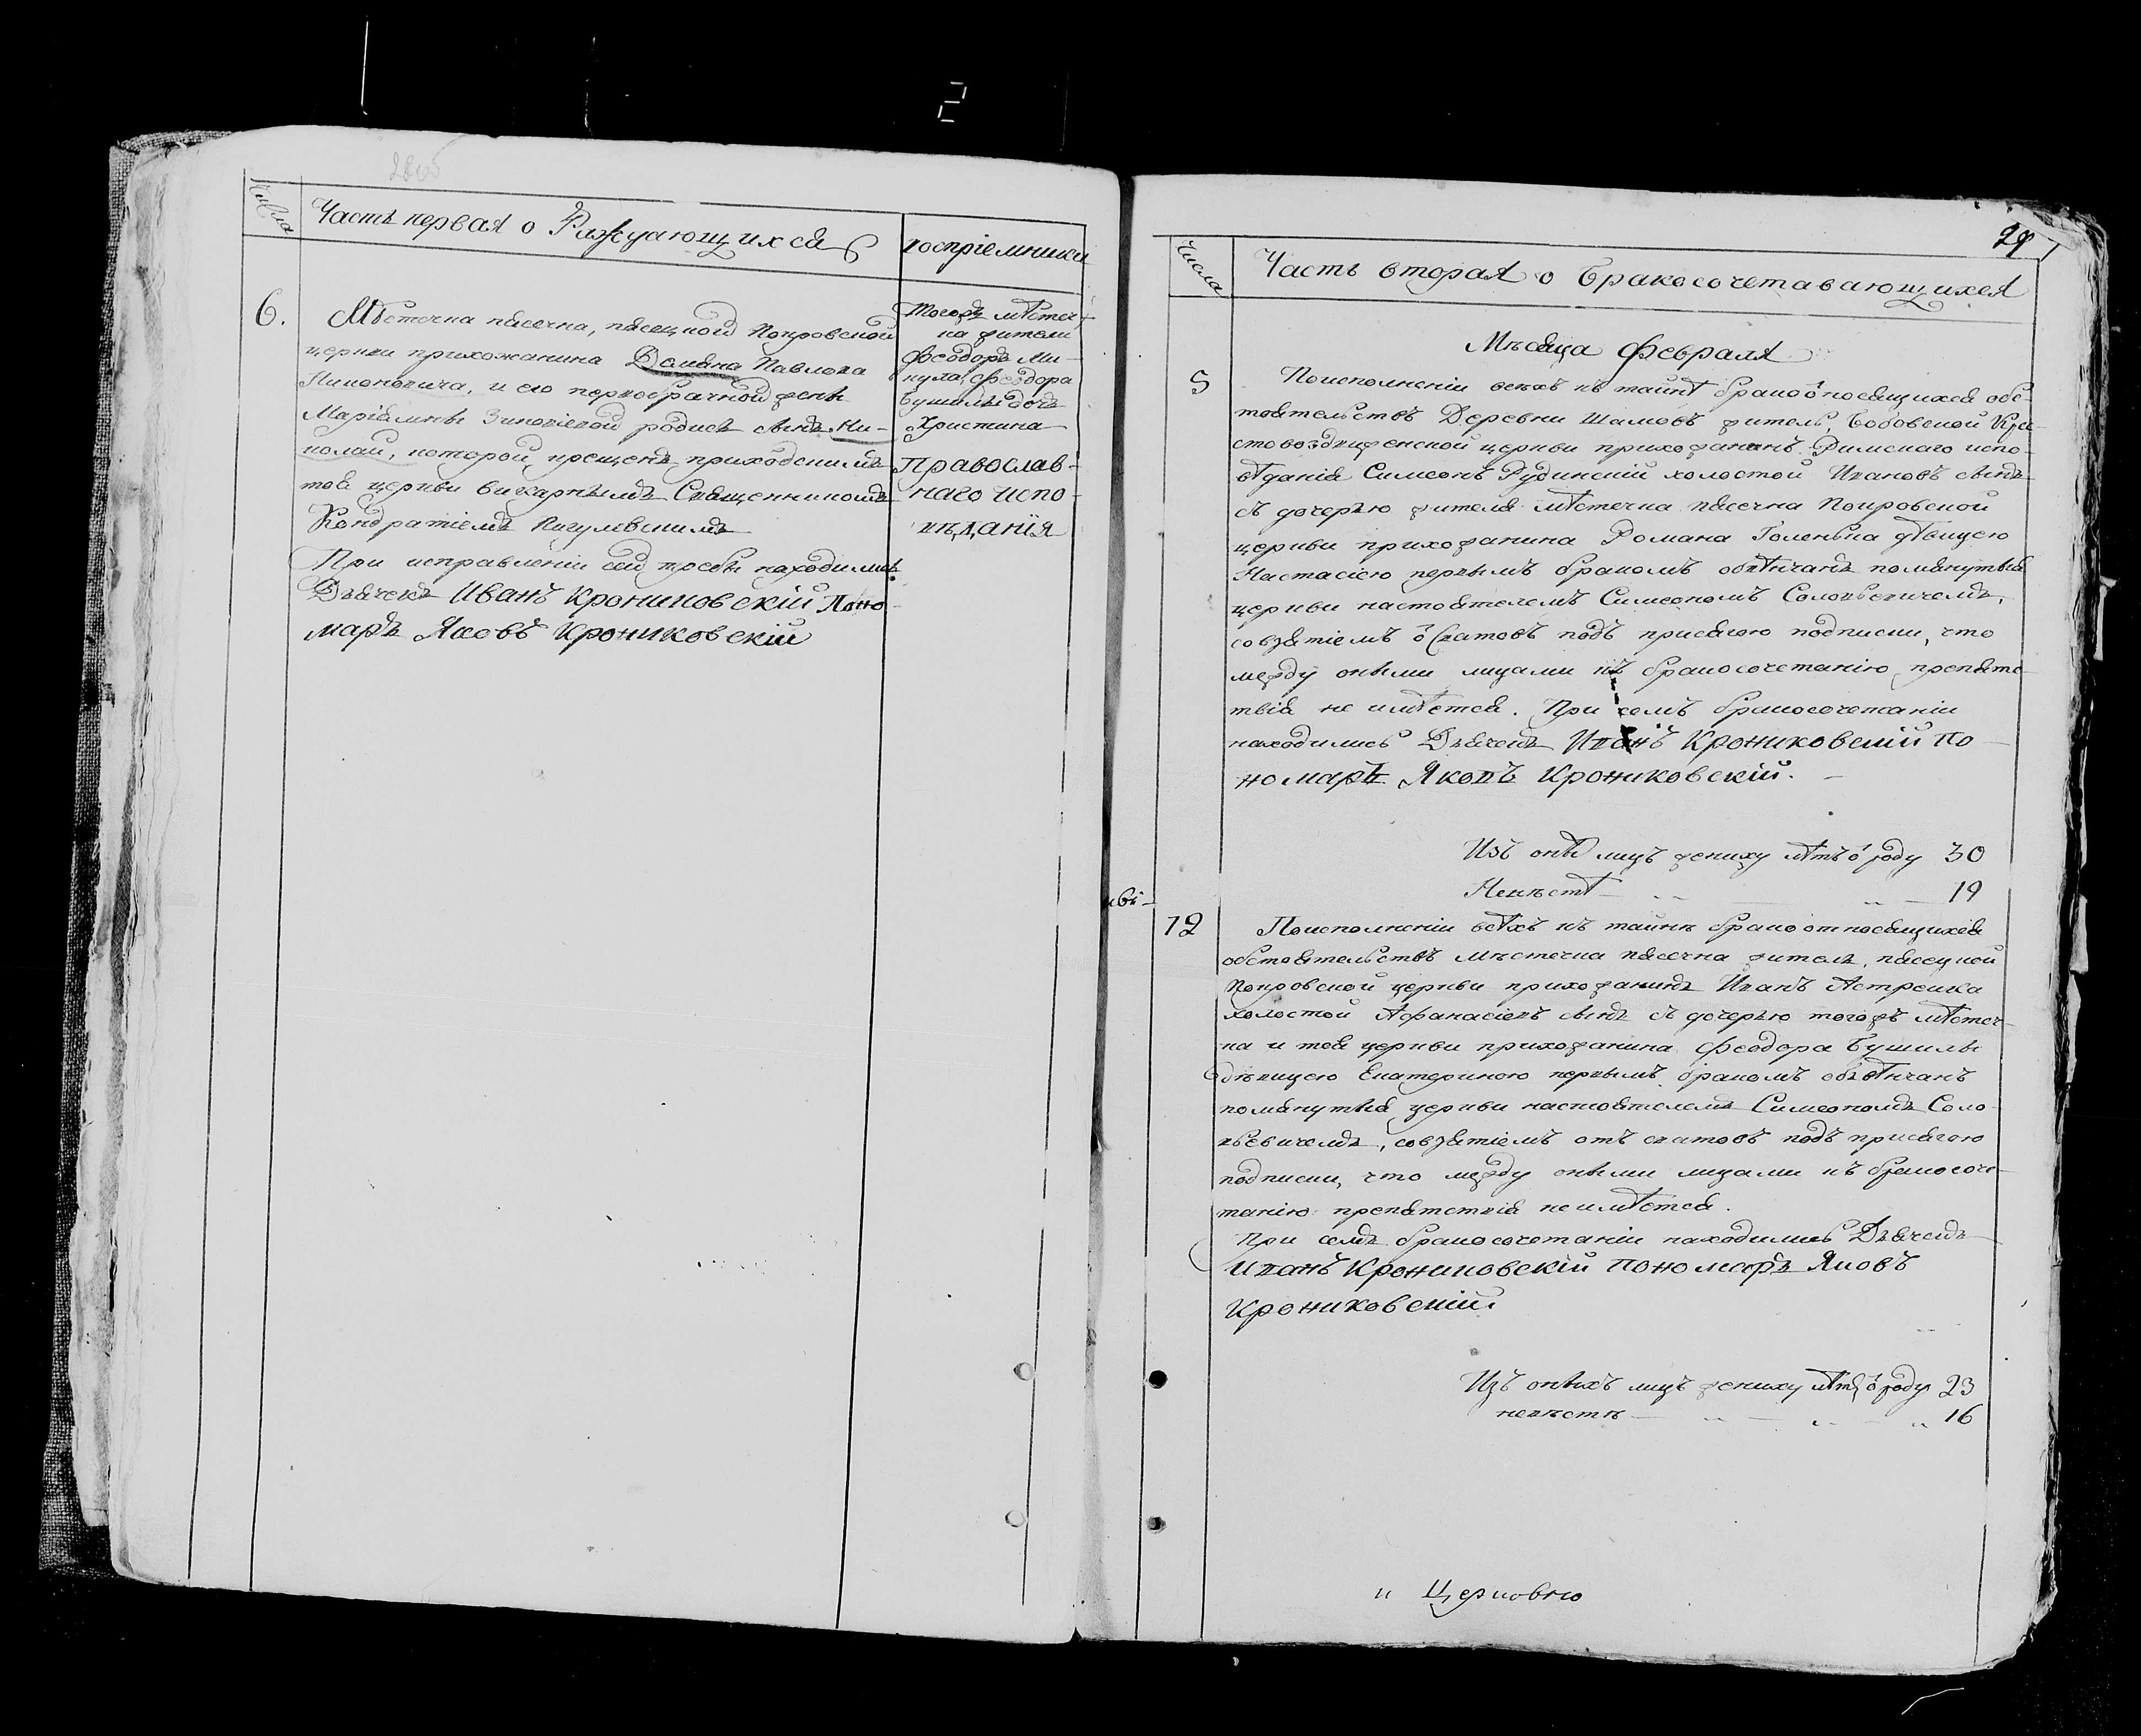 Числа
Часть первая о Раждающихся
воспріемники
6.
Мѣстечка пясечна, пясецкой Покровской
церкви прихожанина Дамяна Павлова
и его первобрачной жены
Маріамны Зиновіевой родися сынъ Ни-
колай, которой крещенъ приходскимъ
тоя церкви викарнымъ Священникомъ
Кондратіемъ
При исправленіи сей требы находились
Дьячекъ Иванъ Крониковскій Поно-
марь Яковъ Крониковскій
Тогожъ мѣстеч-
ка жители
Феодоръ Ми-
кула, Феодора
Бушилы дочь
Христина
Православ-
наго испо-
вѣданія
Числа
Часть вторая о Бракосочетавающихся
Мѣсяца Февраля
5
Поисполненіи всѣхъ къ тайнѣ брака относящихся обс-
тоятельствъ Деревни Шамовъ житель, Бобовской Кре-
стовоздвиженской церкви прихожанинъ Римскаго испо-
вѣданія Симеонъ Рудинскій холостой Ивановъ сынъ
съ дочерью жителя мѣстечка пясечна Покровской
церкви прихожанина Романа Голенька дѣвицею
Настасіею первымъ бракомъ обвѣнчанъ помянутыя
церкви настоятелемъ Симеономъ Соловьевичемъ,
совзятіемъ о сватовъ подъ присягою подписки, что
между оными лицами къ бракосочетанію препятс-
твія не имѣется. При семъ бракосочетаніи
находились Дьячекъ Иванъ Крониковскій По-
номарь Яковъ Крониковскій.
Изъ оны лицъ жениху лѣтъ о роду 30
Невѣстѣ 19
12
Поисполненіи всѣхъ къ тайнѣ брака относящихся
обстоятельствъ Мѣстечка пясечна житель, пясецкой
Покровской церкви прихожанинъ Иванъ Астрейка
холостой Афанасіевъ сынъ съ дочерью тогожъ мѣстеч-
ка и тоя церкви прихожанина Феодора Бушилы
дѣвицею Екатериною первымъ бракомъ обвѣнчанъ
помянутыя церкви настоятелемъ Симеономъ Соло-
вьевичемъ, совзятіемъ отъ сватовъ подъ присягою
подписки, что между оными лицами къ бракосоче-
танію препятствія неимѣется.
При семъ бракосочетаніи находились Дьячекъ
Иванъ Крониковскій Пономарь Яковъ
Крониковскій
Изъ оныхъ лицъ жениху лѣтъ о роду 23
невѣстѣ 16
и Церковню